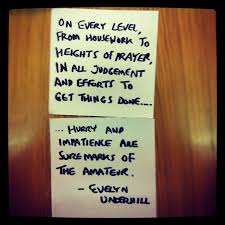 ON EVERY LEVEL,
FROM HOUSEWORK TO
HEIGHTS OF PRAYER,
IN ALL JUDGEMENT
AND EFFORTS TO
GET THINGS DONE....
... HURRY AND
IMPATIENCE ARE
SURE MARKS OF
THE AMATEUR.
- EVELYN
UNDERHILL